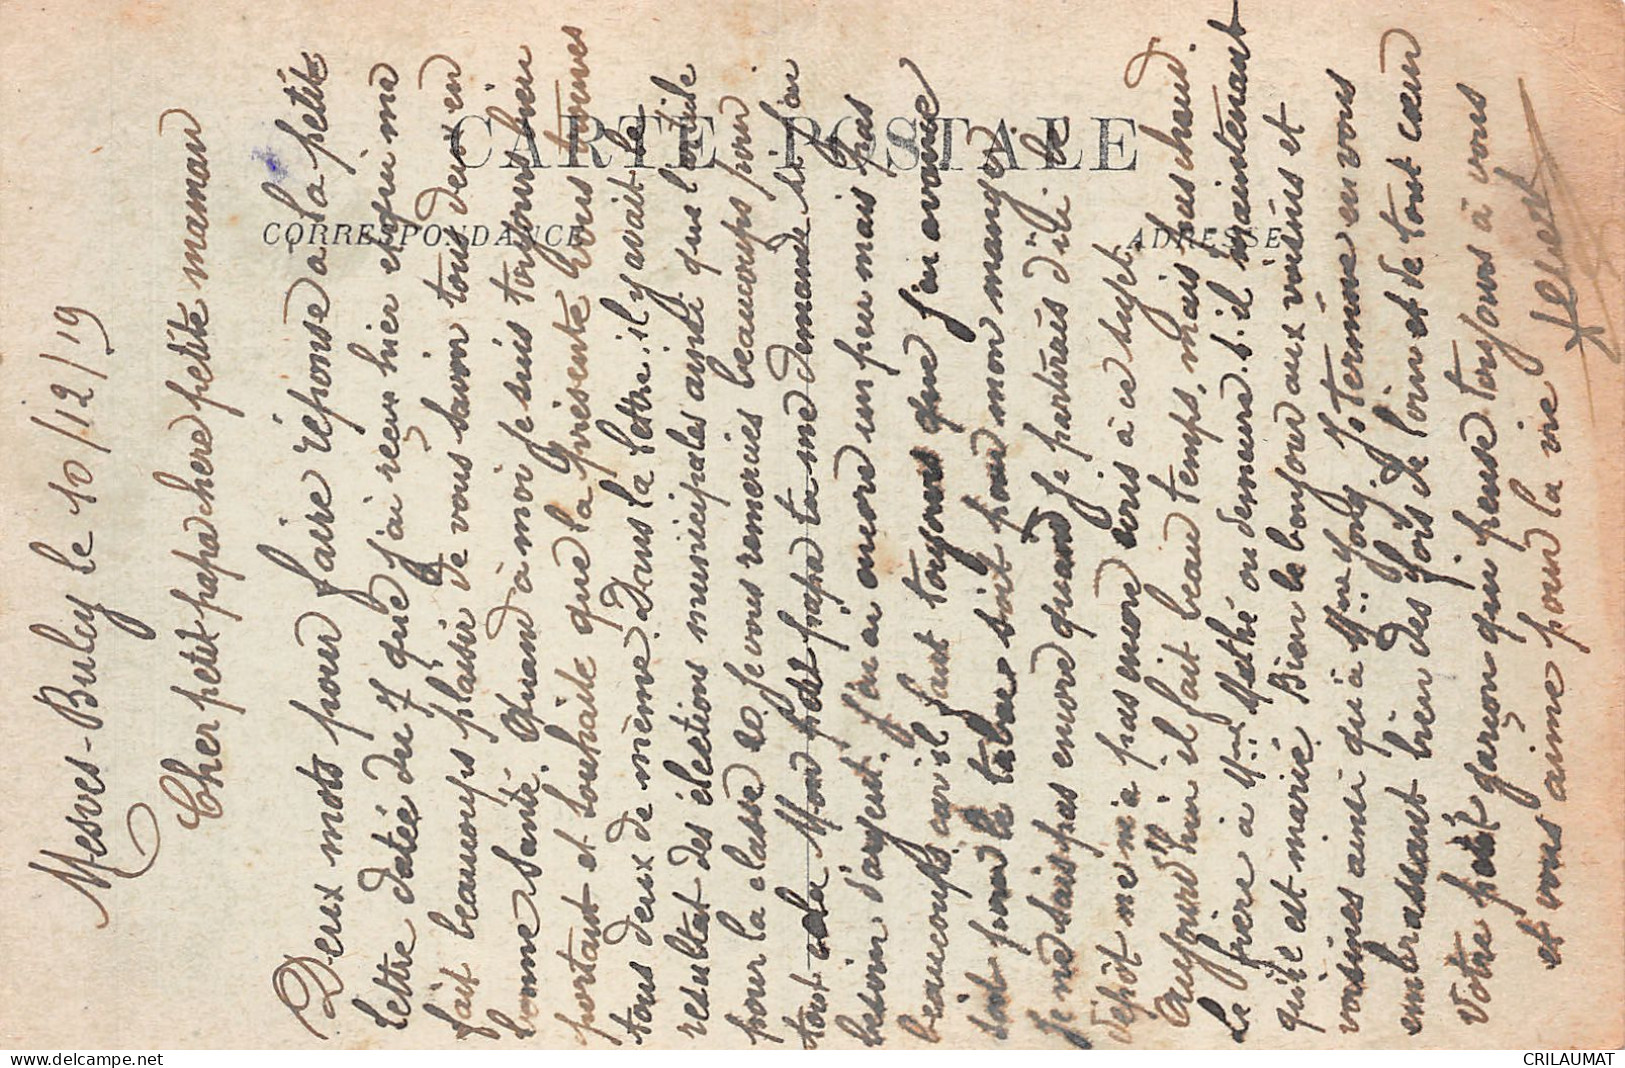 Mesves-Buley le 10/12/19
Cher petit papa chere petite maman
Deux mots pour faire réponse a la petite
lettre datée du 7 que j'ai reçu hier et qui me
fait beaucoups plaisir de vous savoir tous deux en
bonne santé. Quand à moi je suis toujours bien
portant et souhaite que la présente vous trouves
tous deux de mième. Dans la lettre il y avait le
resultat des élections municipales ainsi qus l'article
pour la classe 20 je vous remercies beaucoups pour
tout cela Mon petit papa tu me demande si j'ai
besoin d'argent. j'en ai encore un peu mais pas
beaucoups, car il faut toujours que j'en avance
soit pour le tabac, soit pour mon manger.
Je ne sais pas encore quand je partirais d'ici. le
dépôt ne m'a pas encore écris à ce sujet.
Aujourd'hui il fait beau temps, mais pas chaud.
Le frère à Mme Methé ou demeure-t-il maintenant
qu'il est marié. Bien le bonjour aux voisins et
voisines ainsi qu'à Mme Jouy. Je termine en vous
embrassant bien des fois de loin et de tout cœur
Votre petit garçon qui pense toujours à vous
et vous aime pour la vie
CARTE POSTALE
CORRESPONDANCE
ADRESSE
delcampe.net
CRILAUMAT